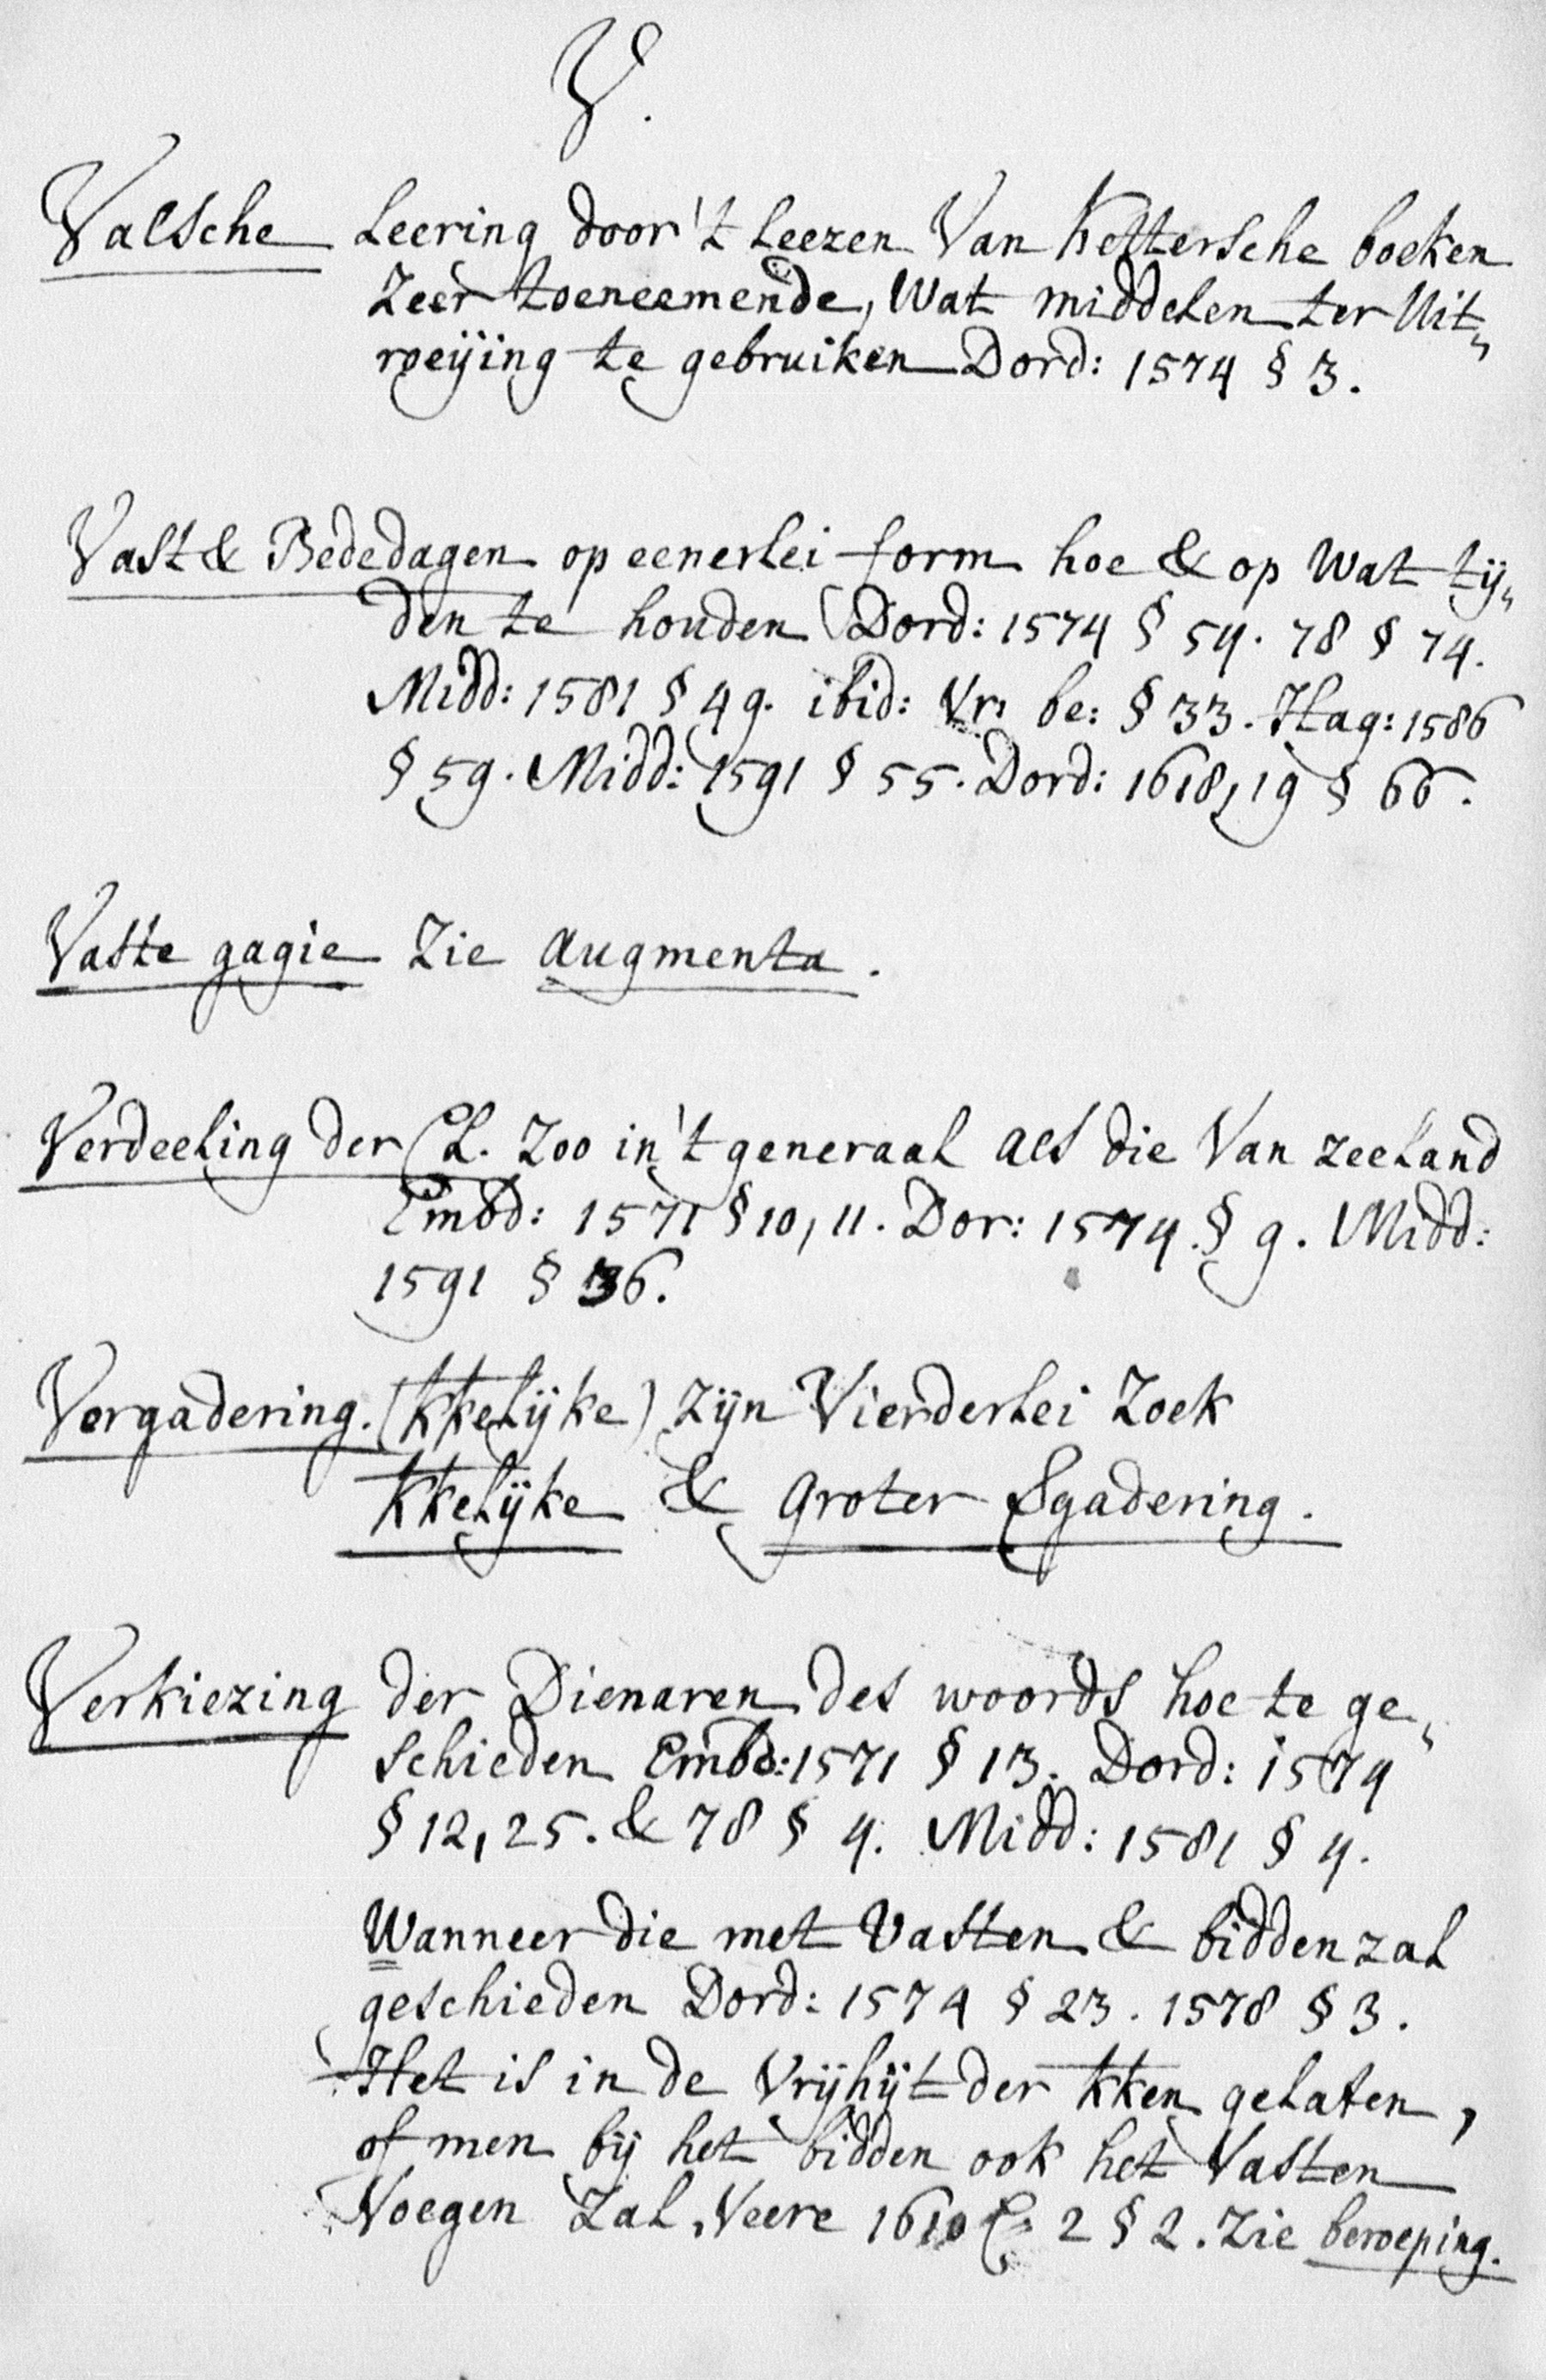 V.
Valsche Leering door 't Leezen Van Kettersche boeken
Zeer toeneemende, Wat middelen ter Uit„
roeijing te gebruiken Dord: 1574 § 3.
Vast & Bededagen op eenerlei form hoe & op Wat tij„
den te houden Dord: 1574 § 54. 78 § 74.
Midd: 1581 § 49. ibid: Vr: be: § 33. Hag: 1586
§ 59. Midd: 1591 § 55. Dord: 1618,19 § 66.
Vaste gagie Zie augmenta.
Verdeeling der Cl. Zoo in 't generaal als die Van zeeland
Embd: 1571 § 10, 11. Dor: 1574. § 9. Midd:
1591 § 36.
Vergadering. (kkelijke) zijn Vierderlei Zoek
kkelijke & groter Vgadering.
Verkiezing der Dienaren des woords hoe te ge„
schieden Embd: 1571 § 13. Dord: 1574
§ 12, 25. & 78 § 4. Midd: 1581 § 4.
Wanneer die met Vasten & bidden zal
geschieden Dord: 1574 § 23. 1578 § 3.
Het is in de Vrijhijt der kken gelaten,
of men bij het bidden ook het Vasten
Voegen Zal, Veere 1610 2 § 2. Zie beroeping.